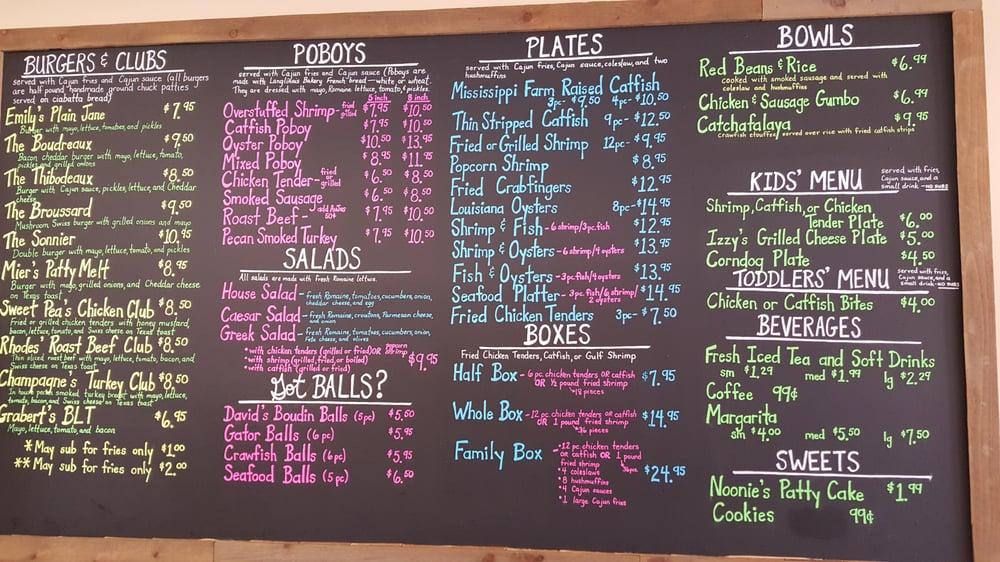 BURGERS & CLUBS
served with Cajun fries and Cajun sauce (all burgers
are half pound handmade ground chuck patties -
served on ciabatta bread)
Emily's Plain Jane $7.95
Burger with mayo, lettuce, tomatoes, and pickles
The Boudreaux $9.50
Bacon cheddar burger with mayo, lettuce, tomato,
pickles and grilled onions
The Thibodeaux $8.50
Burger with Cajun sauce, pickles, lettuce, and Cheddar
cheese
The Broussard $9.50
Mushroom Swiss burger with grilled onions and mayo
The Sonnier $10.95
Double burger with mayo, lettuce, tomato, and pickles
Mier's Patty Melt $8.95
Burger with mayo, grilled onions, and Cheddar cheese
on Texas toast
Sweet Pea's Chicken Club $8.50
Fried or grilled chicken tenders with honey mustard,
bacon, lettuce, tomato, and Swiss cheese on Texas toast
Rhodes' Roast Beef Club $8.50
Thin sliced roast beef with mayo, lettuce, tomato, bacon, and
Swiss cheese on Texas toast
Champagne's Turkey Club $8.50
In house pecan smoked turkey breast with mayo, lettuce,
tomato, bacon, and Swiss cheese on Texas toast
Grabert's BLT $6.95
Mayo, lettuce, tomato, and bacon
* May sub for fries only $1.00
** May sub for fries only $2.00
POBOYS
served with Cajun fries and Cajun sauce (Poboys are
made with Langlinais Bakery French bread - white or wheat.
They are dressed with mayo, Romaine lettuce, tomato, & pickles.
5 inch 8 inch
Overstuffed Shrimp - fried grilled $7.95 $10.50
Catfish Poboy $7.95 $10.50
Oyster Poboy $10.50 $13.95
Mixed Poboy $8.95 $11.95
Chicken Tender - fried or grilled $6.50 $8.50
Smoked Sausage $6.50 $8.50
Roast Beef - add AuJus 50¢ $7.95 $10.50
Pecan Smoked Turkey $7.95 $10.50
SALADS
All salads are made with fresh Romaine lettuce.
House Salad - fresh Romaine, tomatoes, cucumbers, onion,
cheddar cheese, and egg
Caesar Salad - fresh Romaine, croutons, Parmesan cheese,
and onion
Greek Salad - fresh Romaine, tomatoes, cucumbers, onion,
Feta cheese, and olives
*with chicken tenders (grilled or fried) OR popcorn shrimp
*with shrimp (grilled, fried, or boiled) $9.95
*with catfish (grilled or fried)
Got BALLS?
David's Boudin Balls (5pc) $5.50
Gator Balls (6pc) $5.95
Crawfish Balls (6pc) $5.95
Seafood Balls (5pc) $6.50
PLATES
served with Cajun fries, Cajun sauce, coleslaw, and two
hushmuffins
Mississippi Farm Raised Catfish
3pc- $9.50 4pc- $10.50
Thin Stripped Catfish 9pc- $12.50
Fried or Grilled Shrimp 12pc- $9.95
Popcorn Shrimp $8.95
Fried Crabfingers $12.95
Louisiana Oysters 8pc- $14.95
Shrimp & Fish - 6 shrimp/3pc fish $12.95
Shrimp & Oysters - 6 shrimp/4 oysters $13.95
Fish & Oysters - 3pc fish/4 oysters $13.95
Seafood Platter - 3pc. fish/6 shrimp/ 2 oysters $14.95
Fried Chicken Tenders 3pc- $7.50
BOXES
Fried Chicken Tenders, Catfish, or Gulf Shrimp
Half Box - 6 pc. chicken tenders OR catfish $7.95
OR ½ pound fried shrimp
18 pieces
Whole Box - 12 pc. chicken tenders OR catfish $14.95
OR 1 pound fried shrimp
36 pieces
Family Box $24.95
*12 pc. chicken tenders
or catfish OR 1 pound
fried shrimp 36pc.
*4 coleslaws
*8 hushmuffins
*4 Cajun sauces
*1 large Cajun fries
BOWLS
Red Beans & Rice $6.99
cooked with smoked sausage and served with
coleslaw and hushmuffins
Chicken & Sausage Gumbo $6.99
Catchafalaya $9.95
Crawfish étouffée served over rice with fried catfish strips
KIDS' MENU
served with fries,
Cajun sauce, and a
small drink - NO SUBS
Shrimp, Catfish, or Chicken
Tender Plate $6.00
Izzy's Grilled Cheese Plate $5.00
Corndog Plate $4.50
TODDLERS' MENU
served with fries,
Cajun sauce, and a
small drink - NO SUBS
Chicken or Catfish Bites $4.00
BEVERAGES
Fresh Iced Tea and Soft Drinks
sm $1.29 med $1.99 lg $2.29
Coffee 99¢
Margarita
sm $4.00 med $5.50 lg $7.50
SWEETS
Noonie's Patty Cake $1.99
Cookies 99¢